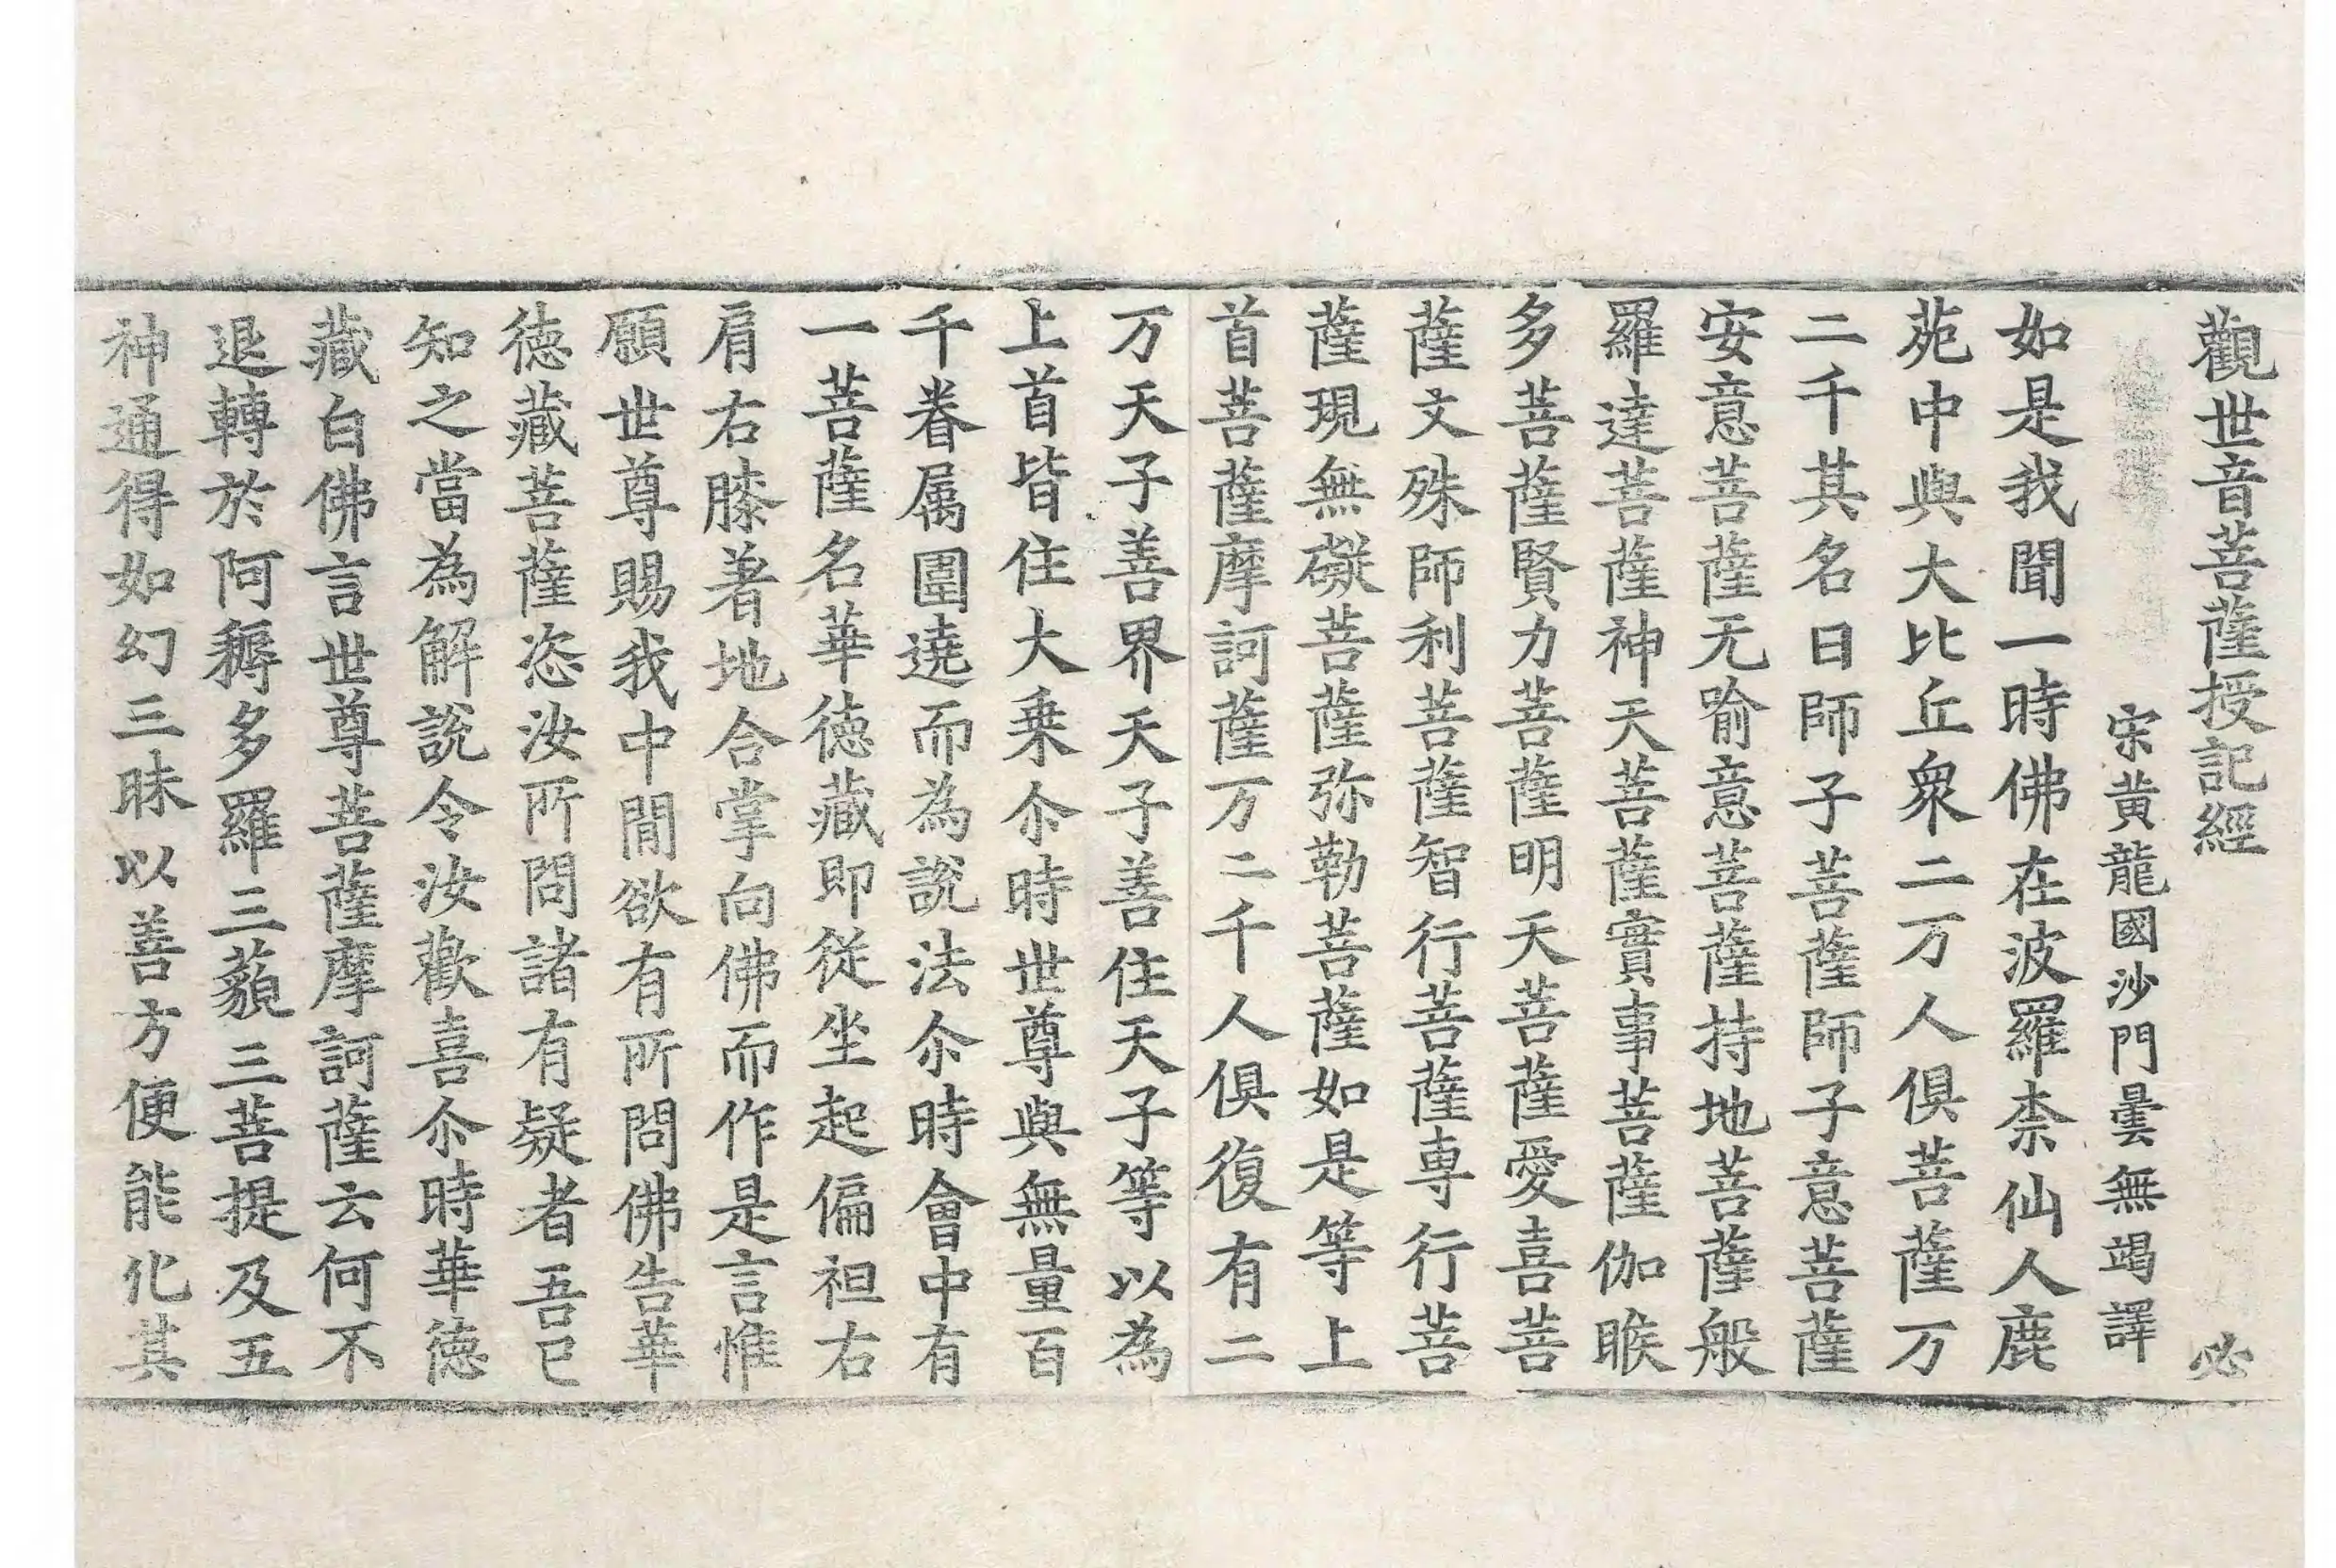 觀世音菩薩授記經 必
宋黃龍國沙門曇無竭譯
如是我聞一時佛在波羅柰仙人鹿
苑中與大比丘衆二万人俱菩薩万
二千其名曰師子菩薩師子意菩薩
安意菩薩无喻意菩薩持地菩薩般
羅達菩薩神天菩薩實事菩薩伽睺
多菩薩賢力菩薩明天菩薩愛喜菩
薩文殊師利菩薩智行菩薩專行菩
薩現無礙菩薩弥勒菩薩如是等上
首菩薩摩訶薩万二千人俱復有二
万天子善界天子善住天子等以為
上首皆住大乗尒時世尊與無量百
千眷属圍遶而為說法尒時會中有
一菩薩名華徳藏即從坐起偏袒右
肩右膝著地合掌向佛而作是言惟
願世尊賜我中閒欲有所問佛告華
徳藏菩薩恣汝所問諸有疑者吾已
知之當為解說令汝歡喜尒時華徳
藏白佛言世尊菩薩摩訶薩云何不
退轉於阿耨多羅三藐三菩提及五
神通得如幻三昧以善方便能化其